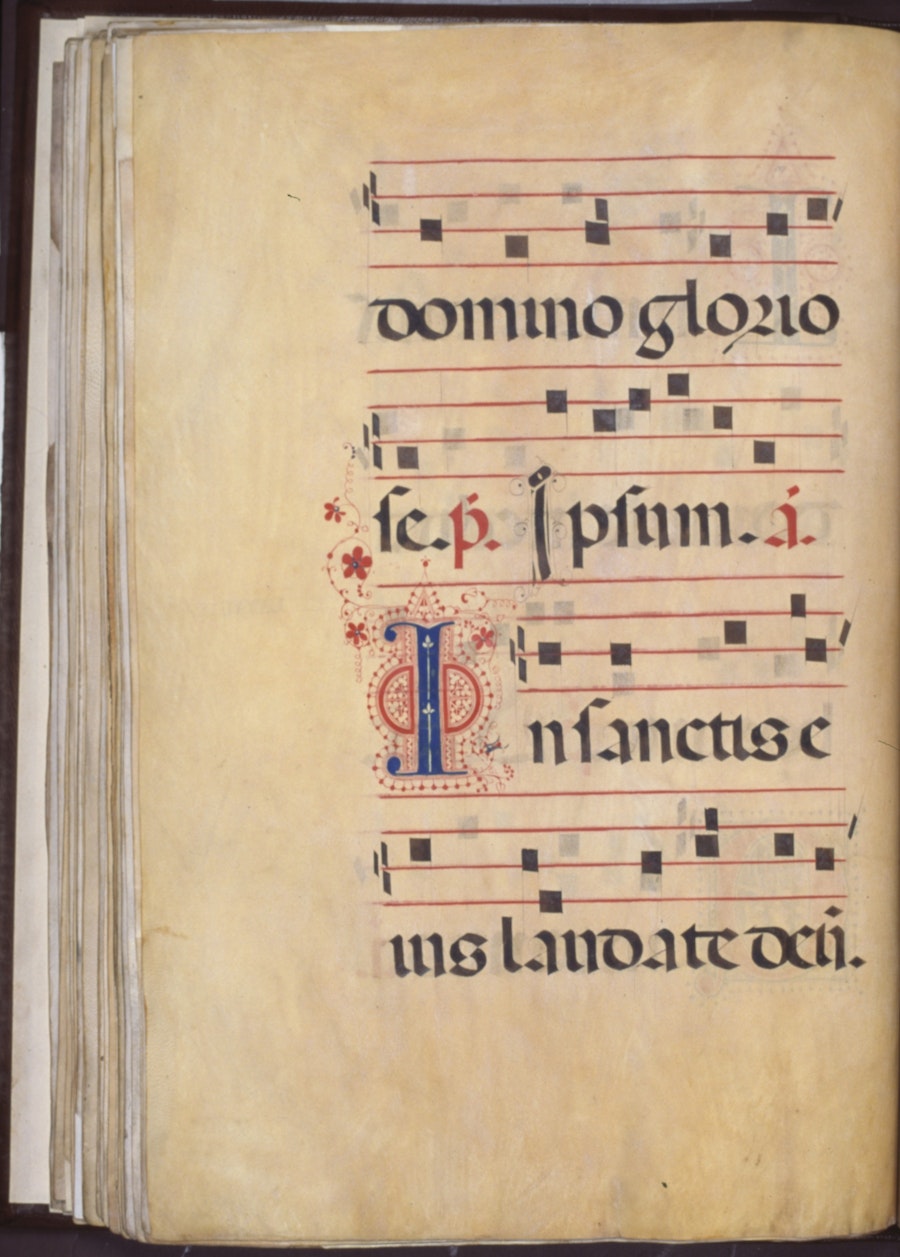 domino glorio
se. p̃. Ipsum. á.
In sanctis e
ius laudate deũ.